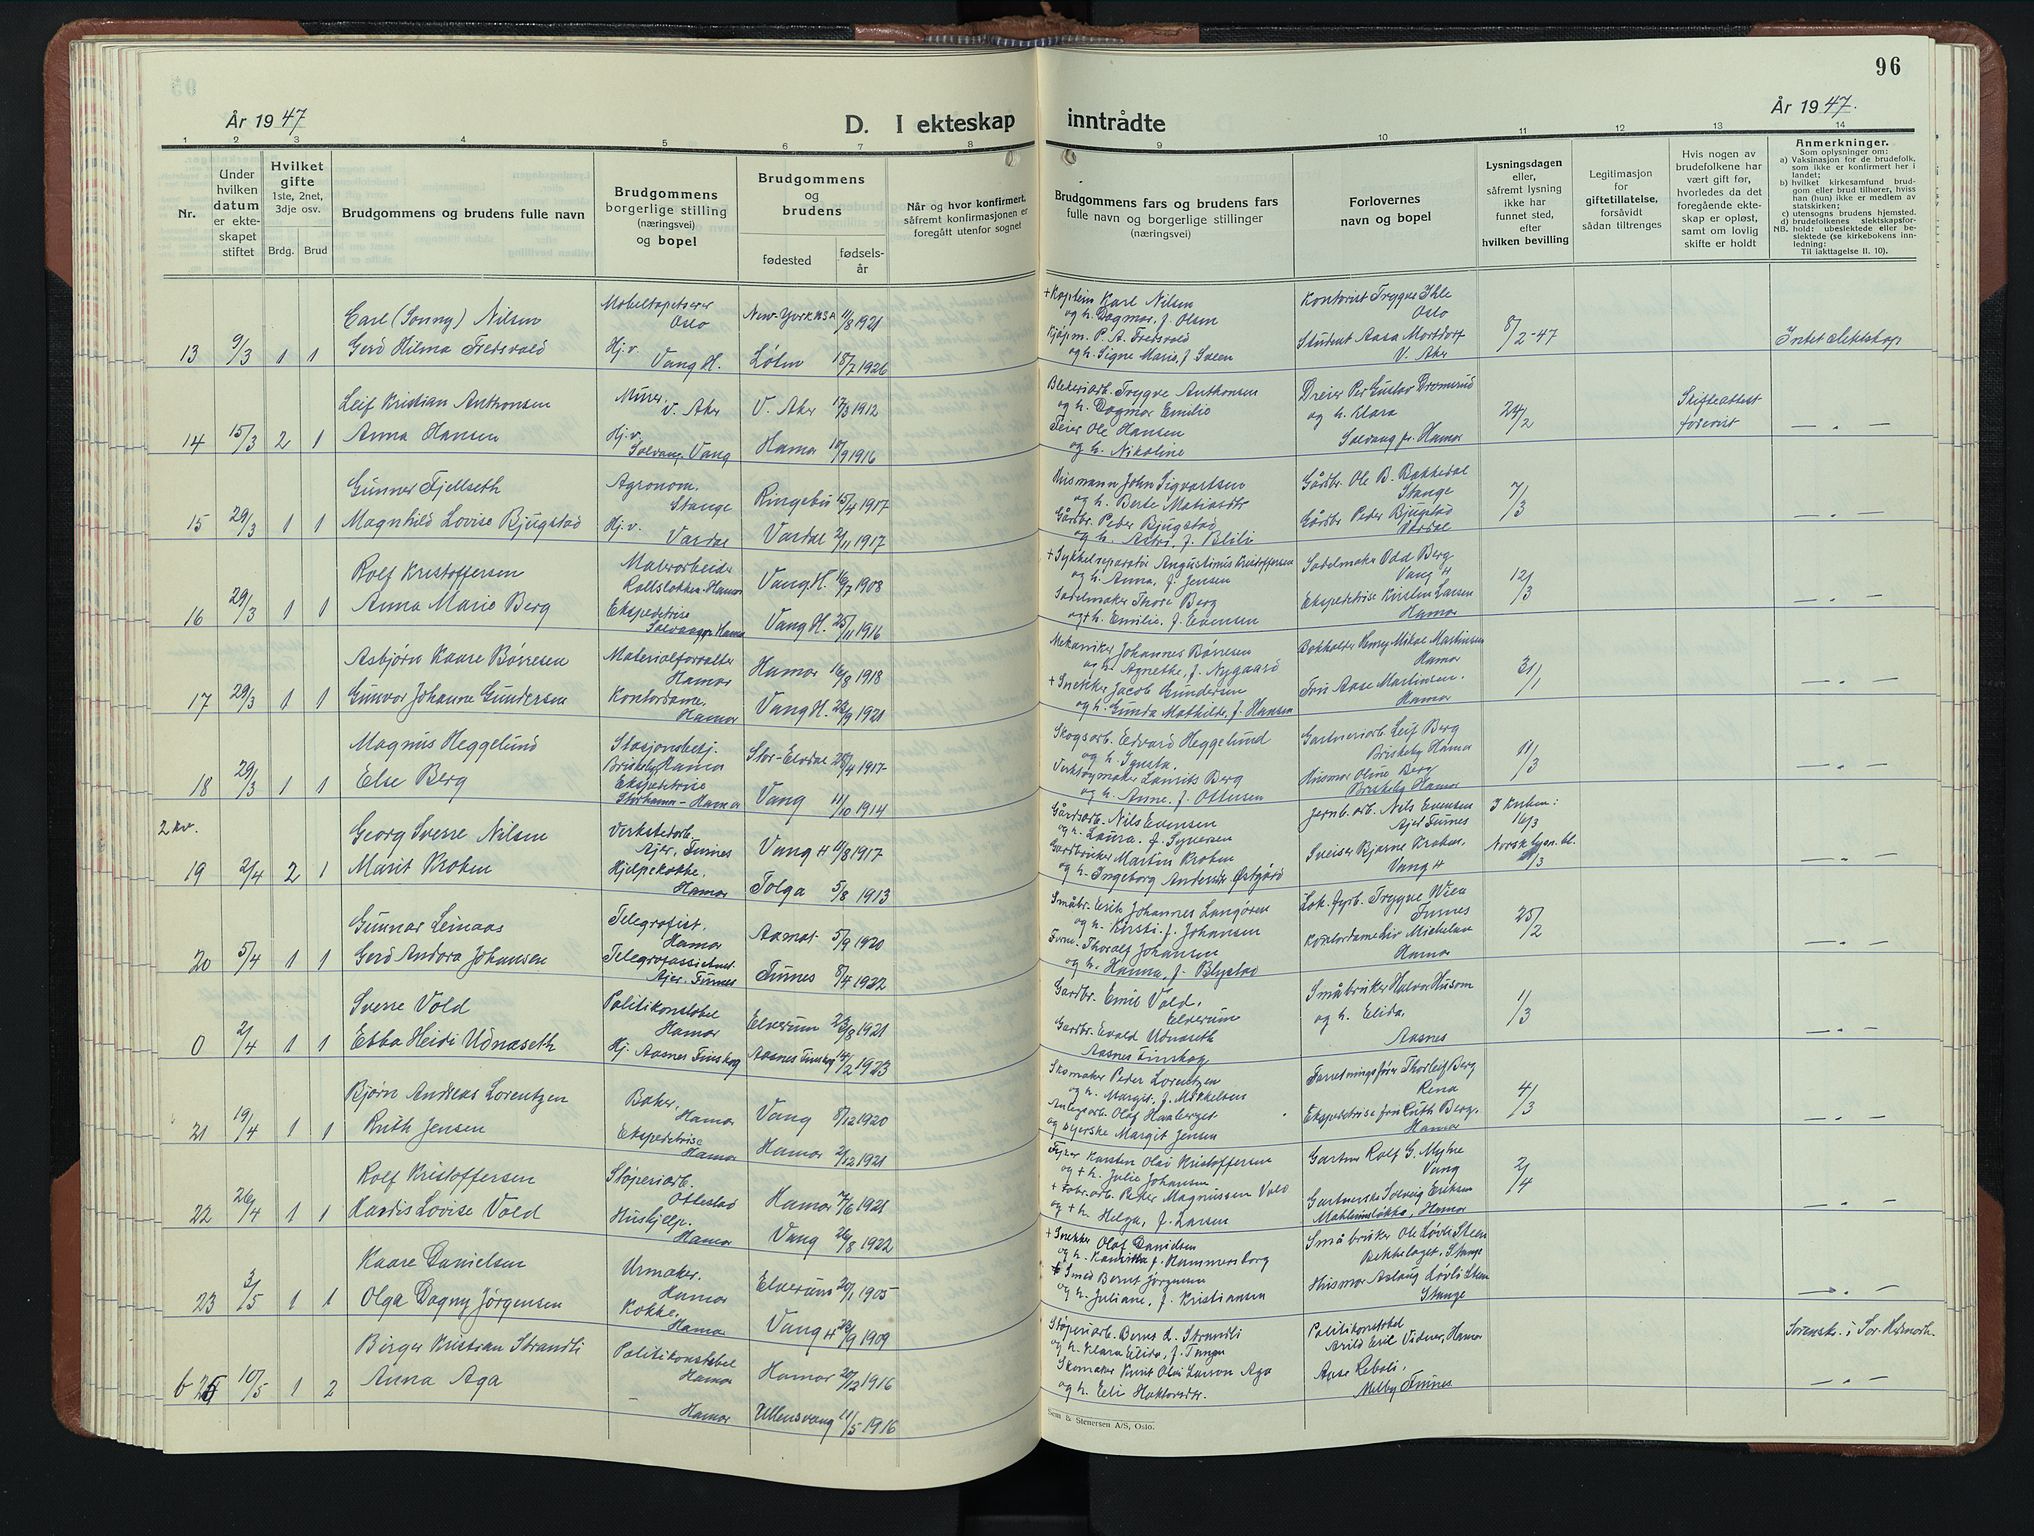 96
År 1947
D. I ekteskap inntrådte
År 1947.
1 2 3 4 5 6 7 8 9 10 11 12 13 14
Nr.
Under hvilken datum er ekteskapet stiftet
Hvilket gifte 1ste, 2net, 3dje osv.
Brdg. Brud
Brudgommens og brudens fulle navn
Brudgommens borgerlige stilling (næringsvei) og bopel
Brudgommens og brudens
fødested
fødselsår
Når og hvor konfirmert, såfremt konfirmasjonen er foregått utenfor sognet
Brudgommens fars og brudens fars fulle navn og borgerlige stillinger (næringsvei)
Forlovernes navn og bopel
Lysningsdagen eller, såfremt lysning ikke har funnet sted, efter hvilken bevilling
Legitimasjon for giftetillatelse, forsåvidt sådan tiltrenges
Hvis nogen av brudefolkene har vært gift før, hvorledes da det foregående ekteskap er opløst, samt om lovlig skifte er holdt
Anmerkninger.
Som oplysninger om:
a) Vaksinasjon for de brudefolk, som ikke er konfirmert her i landet;
b) hvilket kirkesamfund brudgom eller brud tilhører, hviss han (hun) ikke er medlem av statskirken;
c) utensogns brudens hjemsted.
d) brudefolkenes slektskapsforhold: ubeslektede eller beslektede (se kirkebokens innledning:
NB. Til iakttagelse II. 10).
Carl (Sonny) Nilsen Møbeltapetserer Oslo New-York USA 11/8 1921 + Kaptein Karl Nilsen og h. Dagmar, f. Olsen Kontorist Trygve Ihle Oslo
13 9/3 1 1 Gerd Hilma Fredsvold Hj.v. Vang H. Løten 18/7 1926 Kjøpm. P. A. Fredsvold og h. Signe Marie, f. Sveen Student Aasa Mortdorf V. Aker 8/2-47 Intet slektskap
Leif Kristian Anthonsen Murer V. Aker V. Aker 17/3 1912 Blekeriarb. Trygve Anthonsen og h. Dagmar Emilie Dreier Per Gustav Dromsrud og h. Klara
14 15/3 2 1 Anna Hansen Hj.v. Solvang, Vang Hamar 10/9 1916 Feier Ole Hansen og h. Nikoline Solvang pr. Hamar 24/2 Skifteattest forevist — " —
Gunnar Fjellseth Agronom. Stange Ringebu 15/4 1917 Husmann John Sigvartsen og h. Berte Mathiasdtr Gårdbr. Ole B. Bakkedal Stange
15 29/3 1 1 Magnhild Lovise Bjugstad Hj.v. Vardal Vardal 2/11 1917 Gårdbr. Peder Bjugstad og h. Astri, f. Blili Gårdbr Peder Bjugstad Vardal 7/3 — " —
Rolf Kristoffersen Malerarbeider Rollsløkken. Hamar Vang H. 16/7 1908 + Sykkelreparatør Angustinus Kristoffersen og h. Anna, f. Jensen Sadelmaker Odd Berg Vang H
16 29/3 1 1 Anna Marie Berg Ekspeditrise Solvang pr Hamar Vang H. 25/11 1916 Sadelmaker Thore Berg og + h. Emilie, f. Evensen Ekspeditrise Kirsten Larsen Hamar 12/3 — " —
Asbjørn Kaare Børresen Materialforvalter Hamar Hamar 16/8 1918 Mekaniker Johannes Børresen og h. Agnethe, f. Nygaard Bokholder Henry Milde Martinsen Hamar
17 29/3 1 1 Gunvor Johanne Gundersen Kontordame. Hamar Vang H. 23/9 1921 + Snekker Jacob Gundersen og h. Gunda Mathilde, f. Hansen Fru Aase Martinsen. Hamar 31/1 — " —
Magnus Heggelund Stasjonsbetj. Briskeby, Hamar Stor-Elvdal 28/4 1917 Skogsarb. Edvard Heggelund og h. Ignsta. Gartneriarb Leif Berg Briskeby Hamar
18 29/3 1 1 Else Berg Ekspeditrise Storhamar - Hamar Vang 11/10 1914 Verktøymaker Laurits Berg og h. Anne, f. Ottesen Husmor Oline Berg Briskeby Hamar 11/3 — " —
2 kv. Georg Sverre Nilsen Verkstedarb. Ajer, Furnes Vang H 11/8 1917 Gårdsarb. Nils Evensen og h. Laura. f. Syversen Jernb. arb. Nils Evensen Ajer Furnes 16/3
19 2/4 2 1 Marit Kroken Hjelpekokke. Hamar Tolga 5/8 1913 Gardbruker Martin Kroken og h. Ingeborg Andersdtr Østgård Sveiser Bjarne Kroken, Vang H — " —
Gunnar Leinaas Telegrafist. Hamar Aamot 5/9 1920 Småbr. Erik Johannes Langøren og h. Kirsti f. Johansen Lok. fyrb. Trygve Wien Furnes
20 5/4 1 1 Gerd Andora Johansen Telegrafassistent. Ajer. Furnes Furnes 8/4 1922 Form. Thoralf Johansen og h. Hanna, f. Blystad Kontordame Liv Mickelsen Hamar 25/2 — " —
Sverre Vold Politikonstabel Hamar Elverum 23/8 1921 Gardbr. Emil Vold. Elverum Småbruker Halvor Husom og h. Elida.
0 2/4 1 1 Ebba Heidi Udnæseth Hj. Aasnes Finskog Aasnes Finskog 14/2 1923 Gardbr. Evald Udnæseth Aasnes Finskog Aasnes 1/3 — " —
Bjørn Andreas Lorentzen Baker. Hamar Vang 8/12 1920 Skomaker Peder Lorentzen og h. Margit, f. Mikkelsen Forretningsfører Thorleif Berg Rena
21 19/4 1 1 Ruth Jensen Ekspeditrise Hamar Hamar 2/12 1921 Anlegsarb. Olaf Haaberget og syerske Margit Jensen Ekspeditrise fru Ruth Berg. Hamar 4/3 — " —
Rolf Kristoffersen Støperiarb. Ottestad Hamar 7/6 1921 Karsten Olai Kristoffersen og + h. Julie Johansen Gartner Rolf G. Myhre Vang
22 26/4 1 1 Hardis Lovise Vold Hushjelp. Hamar Vang 26/8 1922 + Fabr.arb. Peter Magnussen Vold og + h. Helga, f. Larsen Gartnerske Solveig Eriksen Mæhlumsløkka, Hamar 2/4 — " —
Kaare Danielsen Urmaker. Hamar Elverum 20/1 1905 + Snekker Olaf Davidsen og h. Kaurikka f. Hammersborg Småbruker Ole Løvli Steen Bekkelaget, Stange
23 3/5 1 1 Olga Dagny Jørgensen Kokke. Hamar Vang H 23/9 1909 + Smed Bernt Jørgensen og h. Juliane, f. Kristiansen Husmor Aslaug Løvli Steen Stange — " —
Birger Kristian Strandli Politikonstabel Hamar Hamar 20/12 1916 Støperiarb. Bernt L. Strandli og h. Klara Elida, f. Tangen Politikonstabel Arild Eril Vidner, Hamar
b 25 10/5 1 2 Anna Aga — Hamar Ullensvang 11/5 1916 Skomaker Knut Olai Larson Aga og h. Eli Haktorsdtr. Aase Reboli, Melby Furnes — " —
Sem & Stenersen A/S, Oslo.